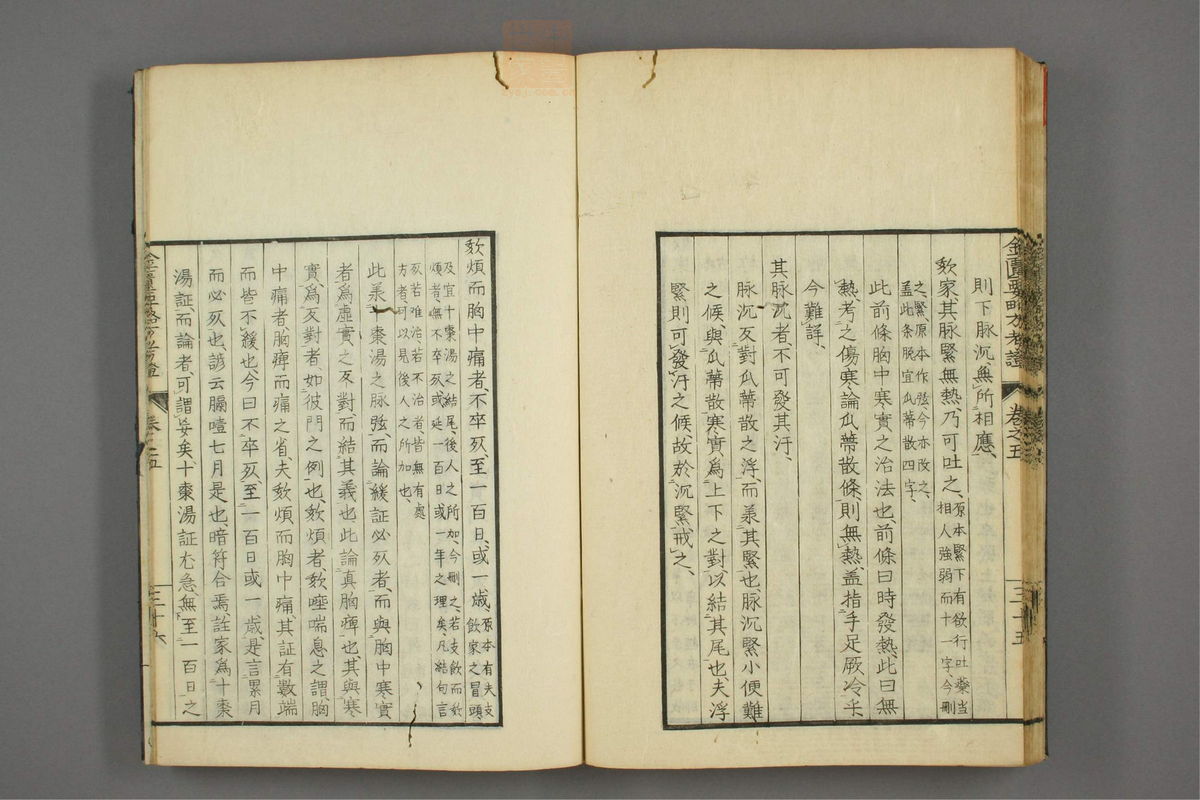 金匱要略方考證 卷之五 三十五
則下脉沉無所相應、
欬家、其脉緊無熱、乃可吐之、原本緊下有欲行吐藥當
相人強弱而十一字今刪
之、緊原本作弦今亦改之、
蓋此条脱宜瓜蒂散四字、
此前條胸中寒實之治法也、前條曰時發熱、此曰無
熱、考之傷寒論瓜蒂散條、則無熱、蓋指手足厥冷乎
今難詳、
其脉沉者、不可發其汗、
脉沉反對瓜蒂散之浮、而羕其緊也、脉沉緊小便難
之候、與瓜蒂散寒實爲上下之對、以結其尾也、夫浮
緊則可發汗之候、故於沉緊戒之、
欬煩而胸中痛者、不卒死、至一百日、或一歲、原本有夫支
飲家之冒頭、
及宜十棗湯之結尾、後人之所加、今刪之、若支飲而欬
煩者、無不卒死、或延一百日或一年之理矣、凡結句言
死若難治、若不治者、皆無有處
方者、可以見後人之所加也、
此羕十棗湯之脉弦、而論緩証必死者、而與胸中寒實
者爲虛實之反對、而結其義也、此論真胸痺也、其與寒
實、爲反對者、如彼門之例也、欬煩者、欬唾喘息之謂、胸
中痛者胸痺而痛之省、夫欬煩而胸中痛、其証有數端
而皆不緩也、今曰不卒死至一百日或一歲、是言累月
而必死也、諺云膈噎七月是也、暗符合焉、註家爲十棗
湯証、而論者、可謂妄矣、十棗湯証尤急、無至一百日之
金匱要略方考證 卷之五 三十六